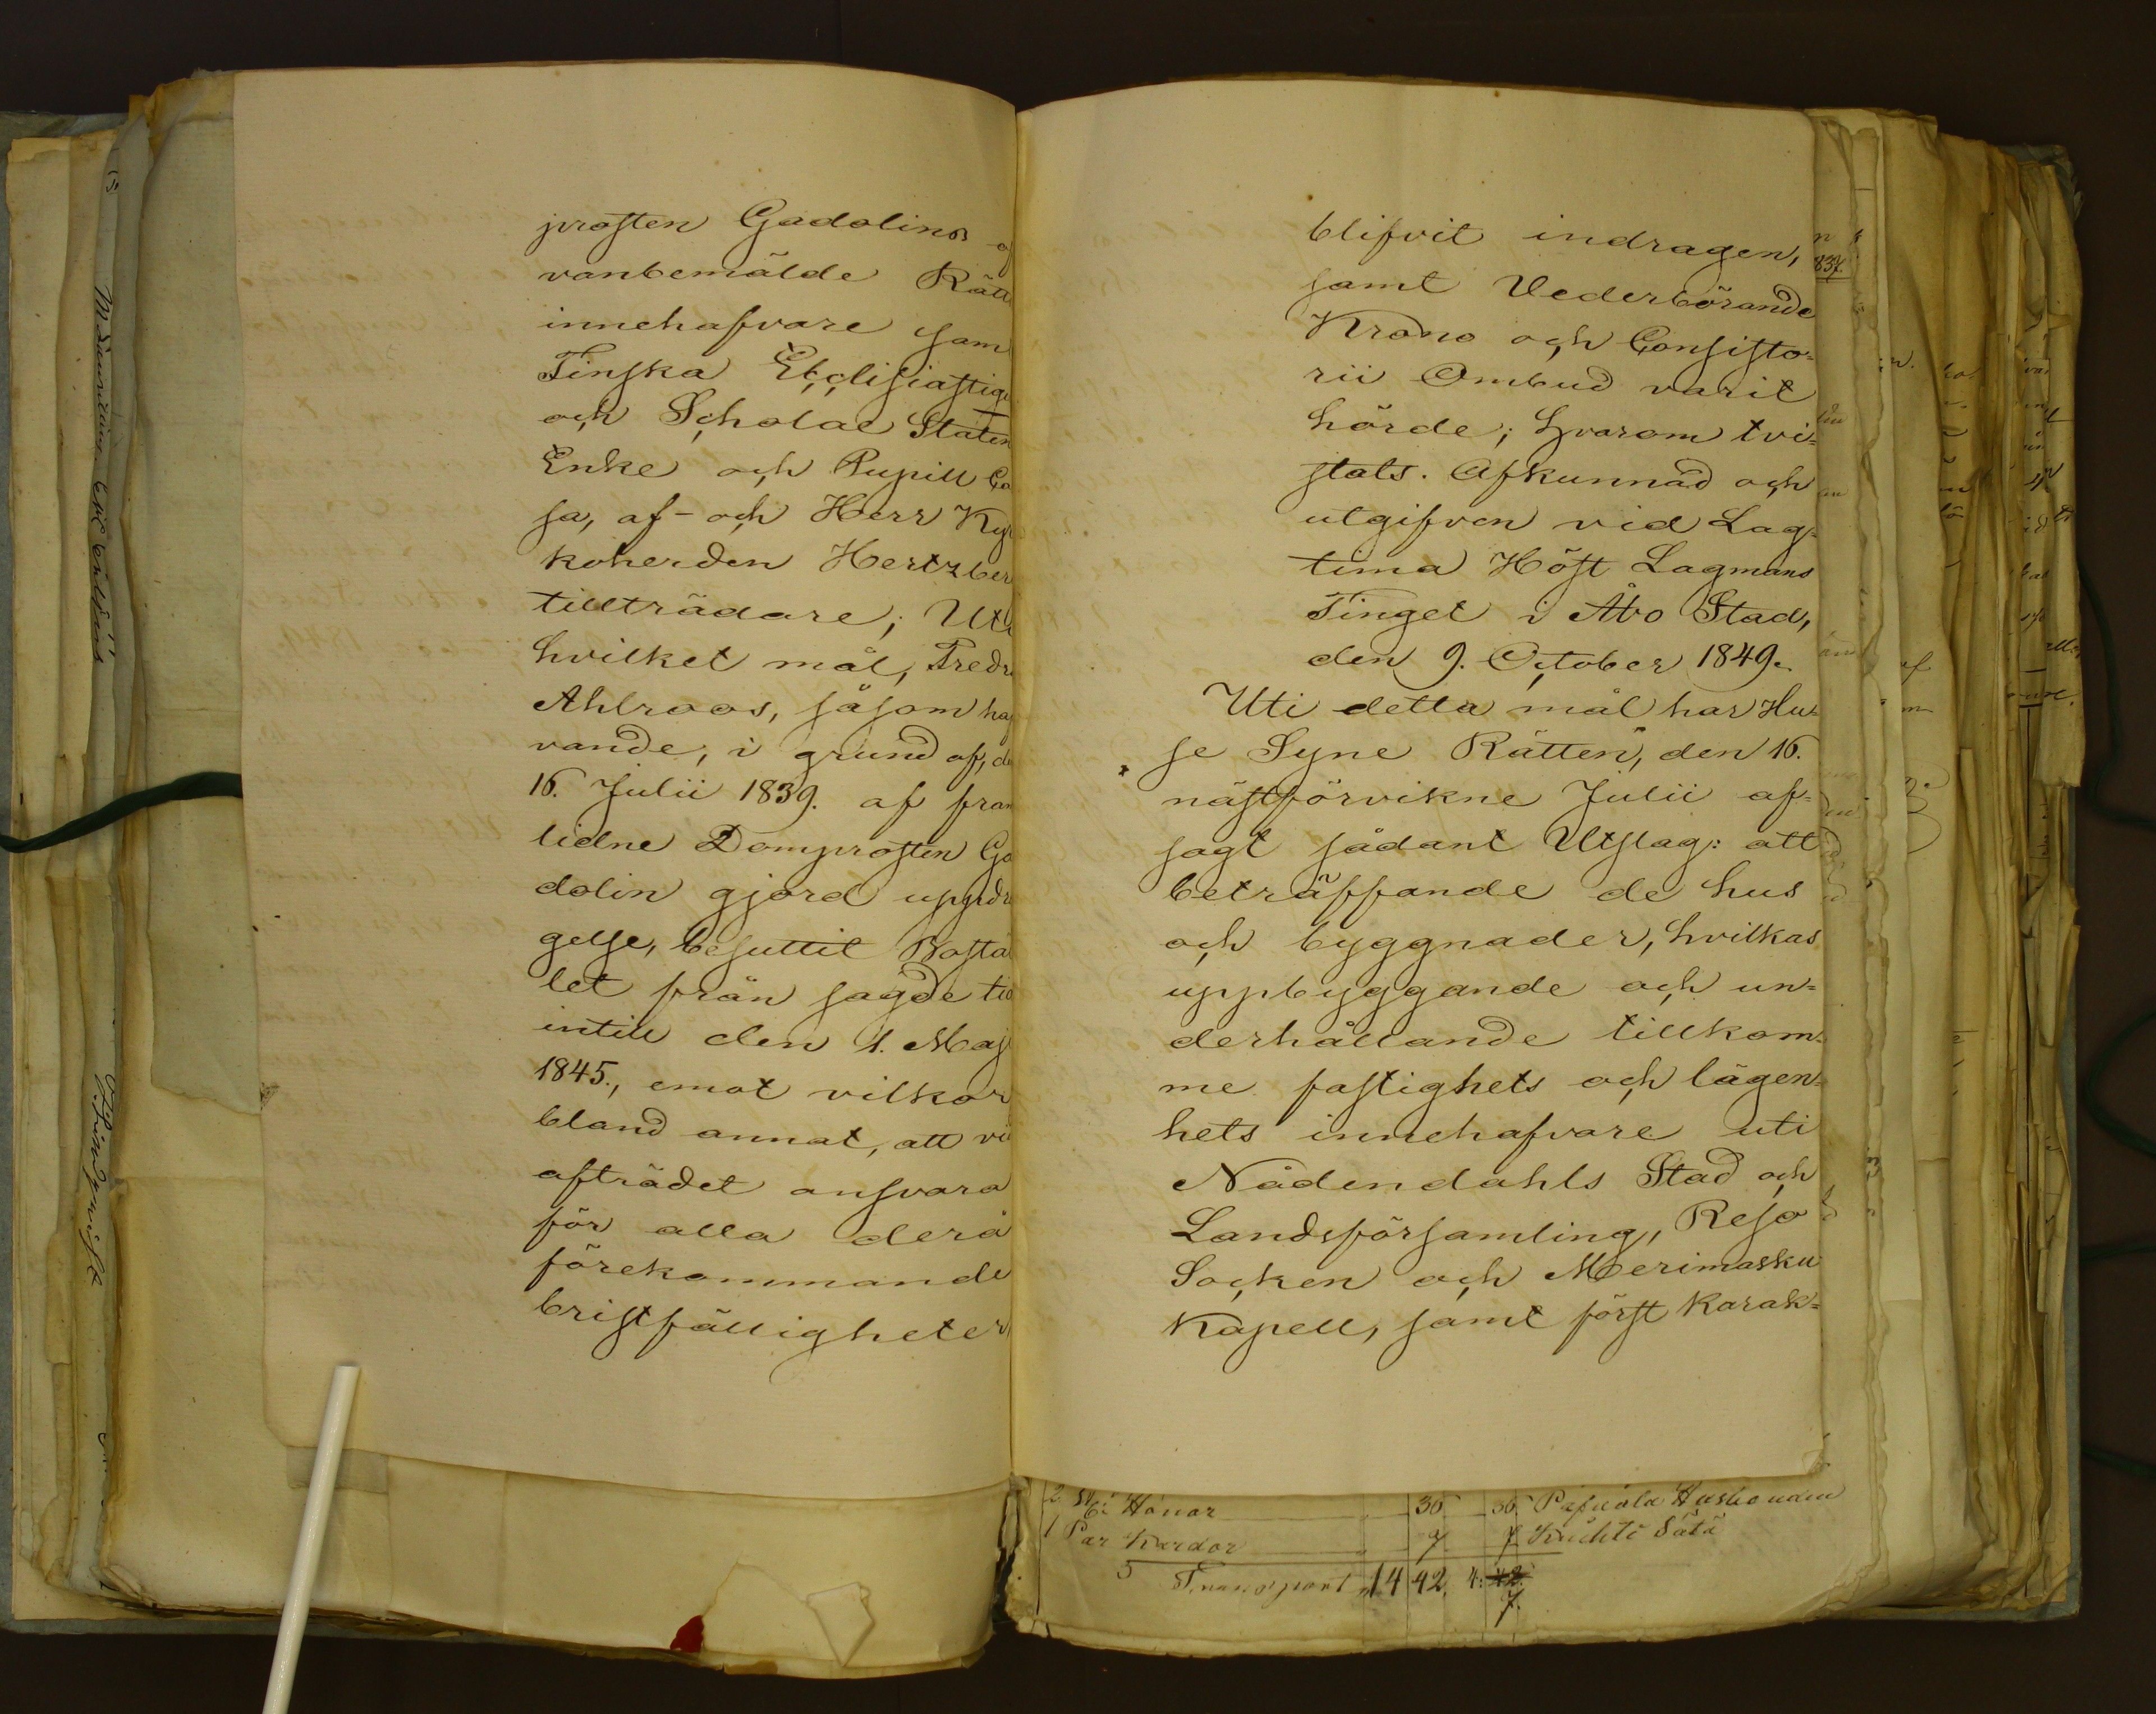 prosten Gadolins
vanbemälde Rätt
innehafvare sam
Finska Ecclisiastiqu
och Scholæ Staten
Enke och Pupill Ca
sa, af- och Herr Kyr
koherden Hertzber
tillträdare; Uti
hvilket mål, Fredr
Ahlroos, såsom haf
vande, i grund af, de
16. Julii 1839. af fram
lidne Domprosten Ga
dolin gjord uppdra
gelse, besuttit Bostäl
let från sagde tid
intill den 1. Maji
1845., emot vilkor
bland annat, att vid
afträdet ansvara
för alla derå
förekommande
bristfälligheter
blifvit indragen,
samt Vederbörande
Krono och Consisto=
rii Ombud varit
hörde; hvarom tvi=
stats. Afkunnad och
utgifven vid Lag=
tima Höst Lagmans
Tinget i Åbo Stad,
den 9. October 1849.
Uti detta mål har Hu=
se Syne Rätten, den 16.
nästförvikne Julii af=
sagt sådant Utslag: att
beträffande de hus
och byggnader, hvilkas
uppbyggande och un=
derhållande tillkom=
me fastighets och lägen=
hets innehafvare uti
Nådendahls Stad och
Landsförsamling, Reso
Socken och Merimasku
Kapell, samt först Karak=
2 St: Hönor 30 30
1 Par Kardor 7 7
Transport 14 42. 4: 42.
7.